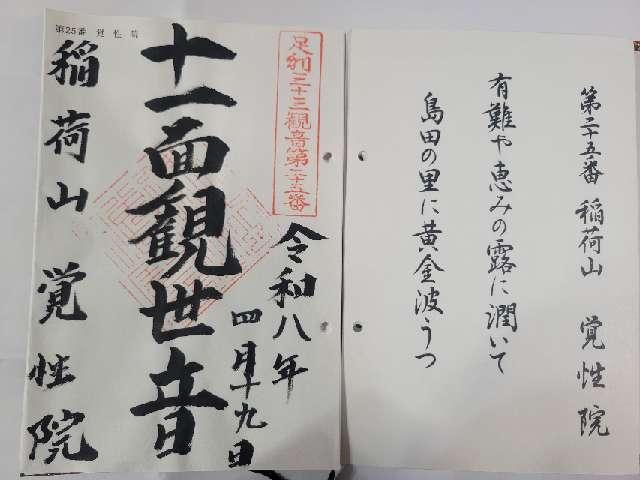 第二十五番 稲荷山 覚性院
有難や恵みの露に潤いて
島田の里に黄金波うつ
足利三十三観音第二十五番
令和八年
四月十九日
十一面観世音
稲荷山 覚性院
第25番 覚性院